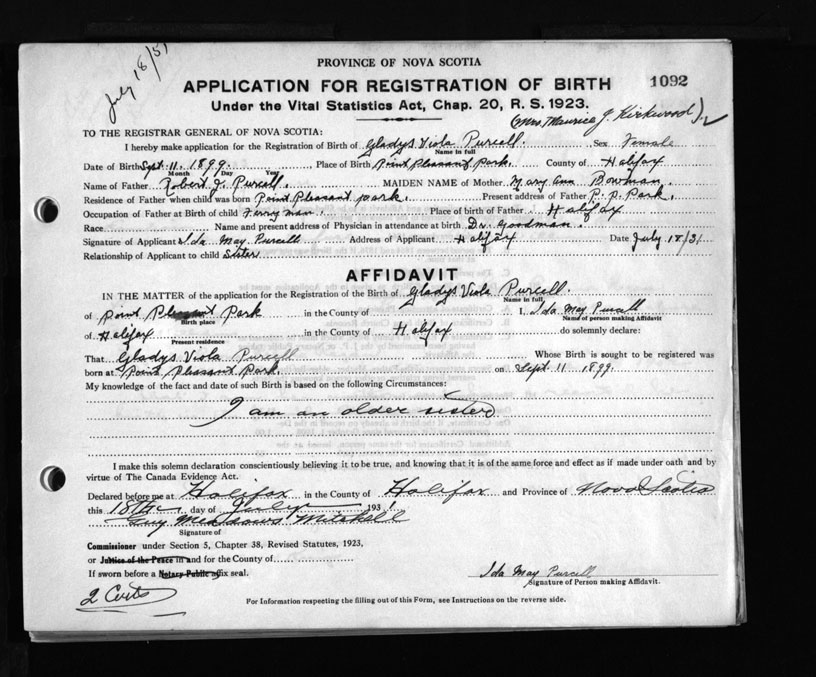 July 18/31
PROVINCE OF NOVA SCOTIA
APPLICATION FOR REGISTRATION OF BIRTH 1092
Under the Vital Statistics Act, Chap. 20, R. S. 1923.
(Mrs. Maurice J. Kirkwood)
TO THE REGISTRAR GENERAL OF NOVA SCOTIA:
I hereby make application for the Registration of Birth of Gladys Viola Purcell. Sex Female
Name in full
Date of Birth Sept. 11. 1899. Place of Birth Point Pleasant Park. County of Halifax
Month Day Year
Name of Father Robert J. Purcell. MAIDEN NAME of Mother Mary Ann Bowman.
Residence of Father when child was born Point Pleasant park. Present address of Father P. P. Park.
Occupation of Father at Birth of child Ferry man. Place of birth of Father Halifax
Race Name and present address of Physician in attendance at birth Dr. Goodman.
Signature of Applicant Ida May Purcell Address of Applicant Halifax Date July 18/31
Relationship of Applicant to child Sister
AFFIDAVIT
IN THE MATTER of the application for the Registration of the Birth of Gladys Viola Purcell.
Name in full
of Point Pleasant Park in the County of Halifax I, Ida May Purcell
Birth place Name of person making Affidavit
of Halifax in the County of Halifax do solemnly declare:
Present residence
That Gladys Viola Purcell Whose Birth is sought to be registered was
born at Point Pleasant Park. on Sept 11 1899.
My knowledge of the fact and date of such Birth is based on the following Circumstances:
I am an older sister
I make this solemn declaration conscientiously believing it to be true, and knowing that it is of the same force and effect as if made under oath and by
virtue of The Canada Evidence Act.
Declared before me at Halifax in the County of Halifax and Province of Nova Scotia
this 18th day of July 1931
Guy Meadows Mitchell
Signature of
Commissioner under Section 5, Chapter 38, Revised Statutes, 1923,
or Justice of the Peace in and for the County of
If sworn before a Notary Public affix seal.
Ida May Purcell
Signature of Person making Affidavit.
2 Certs
For Information respecting the filling out of this Form, see Instructions on the reverse side.